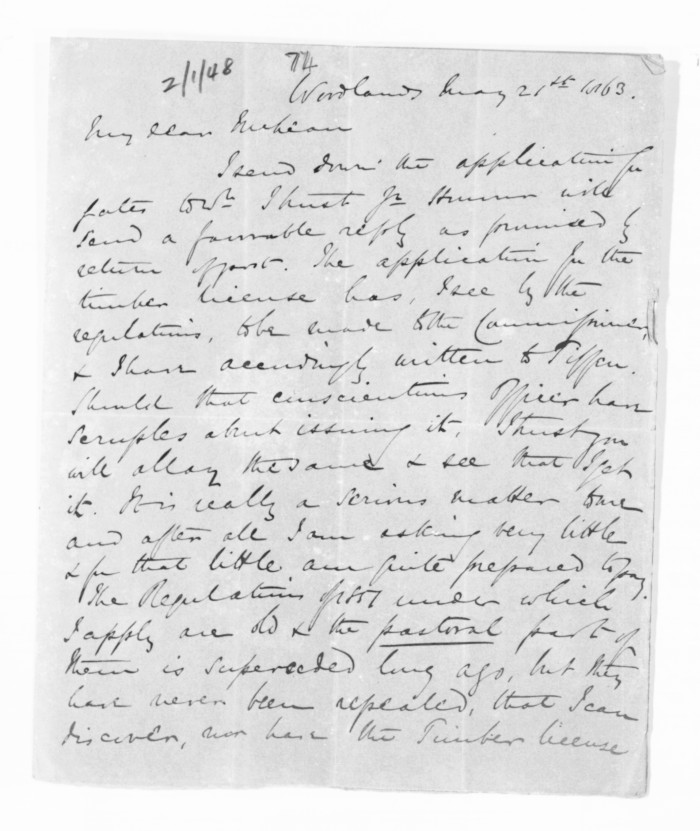 2/1/48 74
Woodlands May 21st 1863.
My dear McLean
I send down the application for
gates to wh I trust yr Honour will
send a favorable reply as promised by
return of post. The application for the
timber license has, I see by the
regulations, to be made to the Commissioner,
& I have accordingly written to Tiffen.
Should that conscientious officer have
scruples about issuing it, I trust you
will allay the same & see that I get
it. It is really a serious matter to me
and after all I am asking very little
& for that little am quite prepared to pay.
The Regulations of under which
I apply are old & the pastoral part of
them is superceded long ago, but they
have never been repealed, that I can
discover, nor have the Timber license